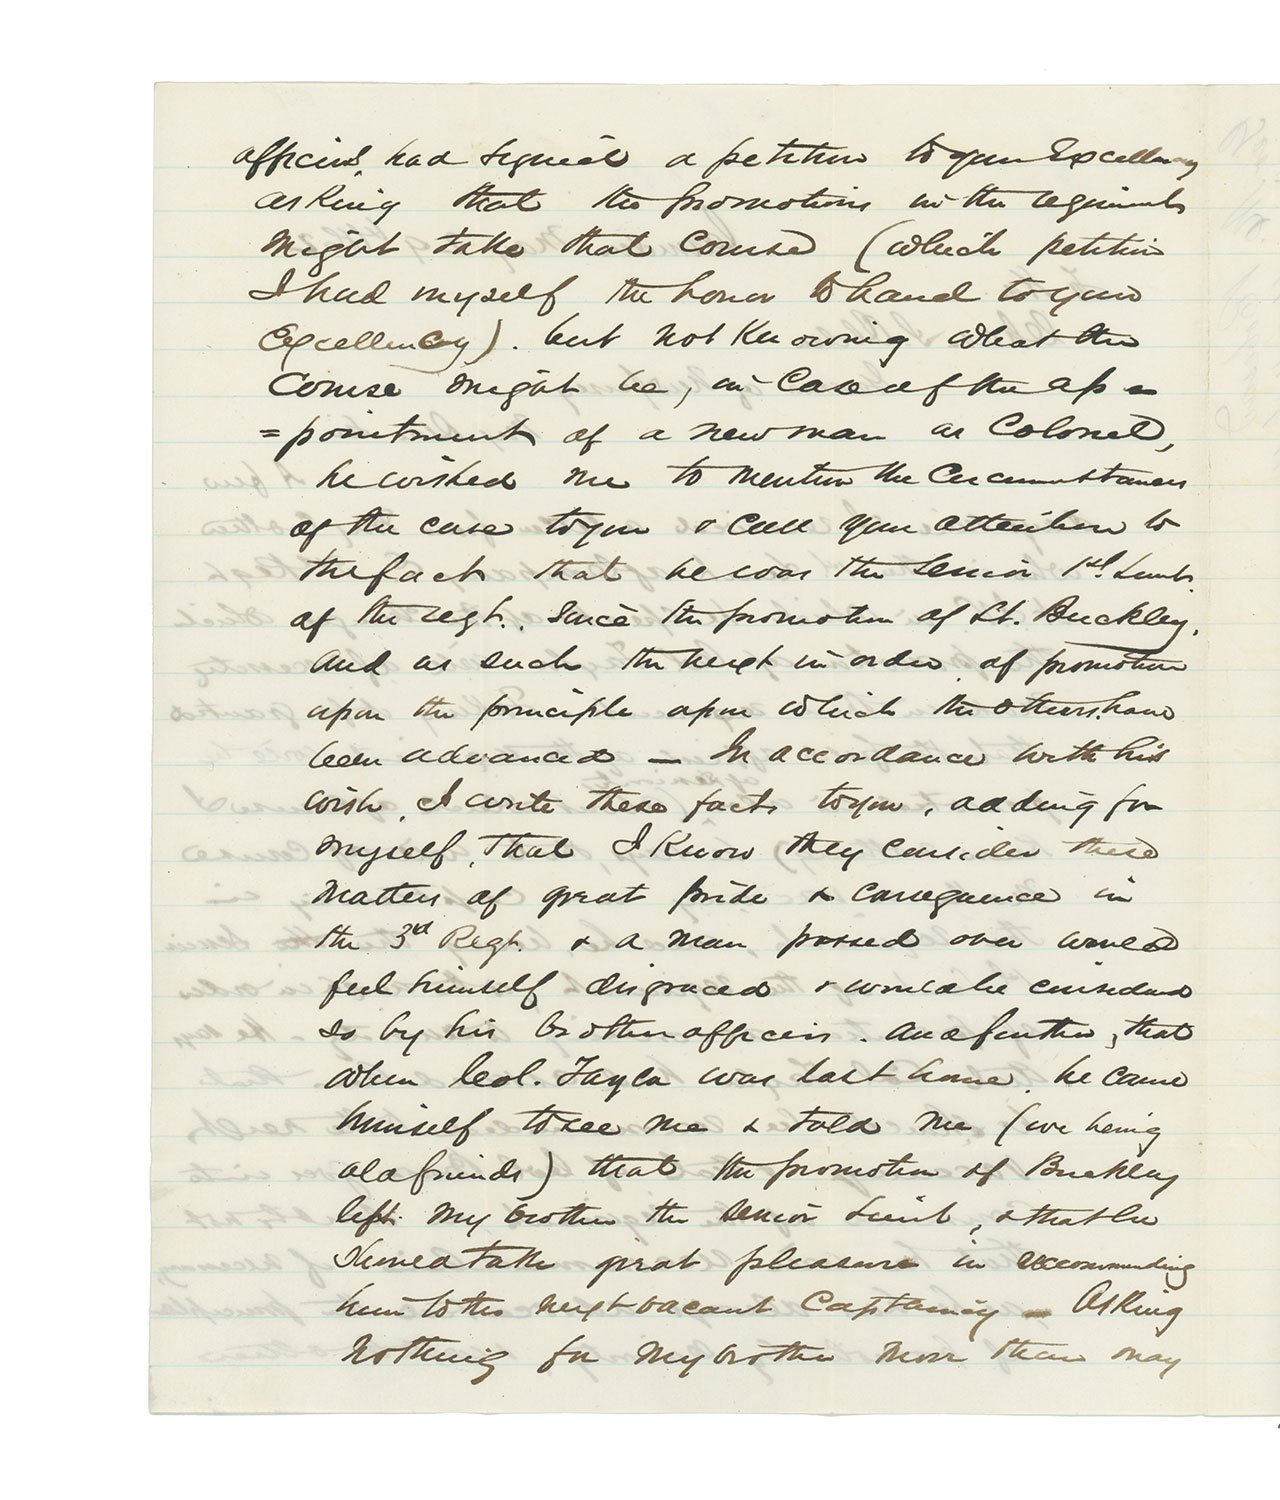 officers, had signed a petition to your Excellency
asking that the promotions in the regiments
might take that course (which petition
I had myself the honor to hand to your
Excellency). but not knowing what the
course might be, in case of the ap=
=pointment of a new man as Colonel,
he wished me to mention the circumstances
of the case to you & call your attention to
the fact that he was the senior 1st. Lieut.
of the regt. since the promotion of Lt. Buckley,
and as such the next in order of promotion
upon the principle upon which the others have
been advanced — In accordance with his
wish, I write these facts to you, adding for
myself, that I know they consider these
matters of great pride & consequence in
the 3rd Regt. & a man passed over would
feel himself disgraced & would be considered
so by his brother officers. And further, that
when Col. Taylor was last home, he came
himself to see me & told me (we being
old friends) that the promotion of Buckley
left my brother the senior Lieut, & that he
should take great pleasure in recommending
him to the next vacant Captaincy — Asking
nothing for my brother more than may